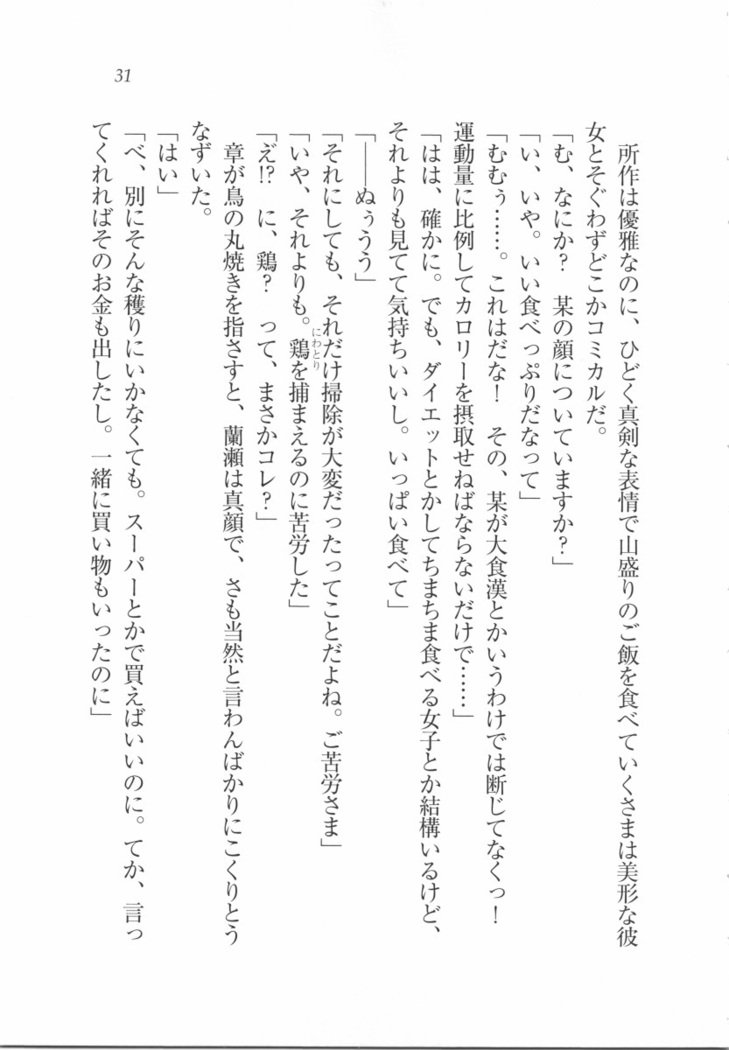 31
所作は優雅なのに、ひどく真剣な表情で山盛りのご飯を食べていくさまは美形な彼
女とそぐわずどこかコミカルだ。
「む、なにか？　某の顔についていますか？」
「い、いや。いい食べっぷりだなって」
「むむぅ……。これはだな！　その、某が大食漢とかいうわけでは断じてなくっ！
運動量に比例してカロリーを摂取せねばならないだけで……」
「はは、確かに。でも、ダイエットとかしてちまちま食べる女子とか結構いるけど、
それよりも見てて気持ちいいし。いっぱい食べて」
「――ぬぅうう」
「それにしても、それだけ掃除が大変だったってことだよね。ご苦労さま」
「いや、それよりも。鶏を捕まえるのに苦労した」
にわとり
「え゛!?　に、鶏？　って、まさかコレ？」
章が鳥の丸焼きを指さすと、蘭瀬は真顔で、さも当然と言わんばかりにこくりとう
なずいた。
「はい」
「べ、別にそんな穫りにいかなくても。スーパーとかで買えばいいのに。てか、言っ
てくれればそのお金も出したし。一緒に買い物もいったのに」